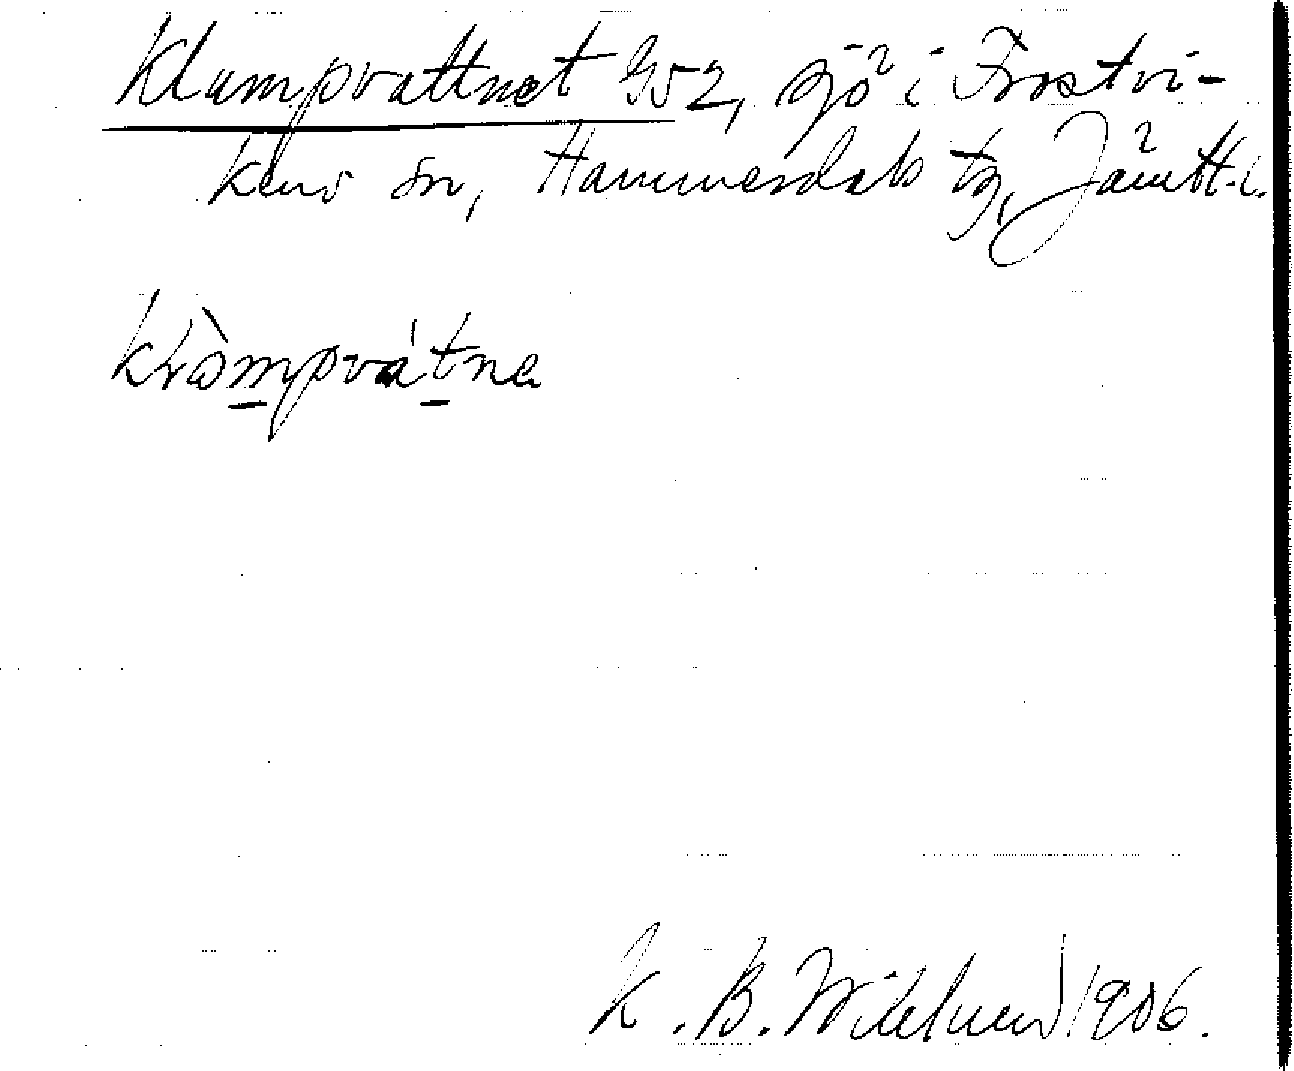 Klumpvattnet 952, sjö i Frostvi-
kens sn, Hammerdals tg, Jämtl. l.
klòmpvátna
K. B. Wiklund 1906.